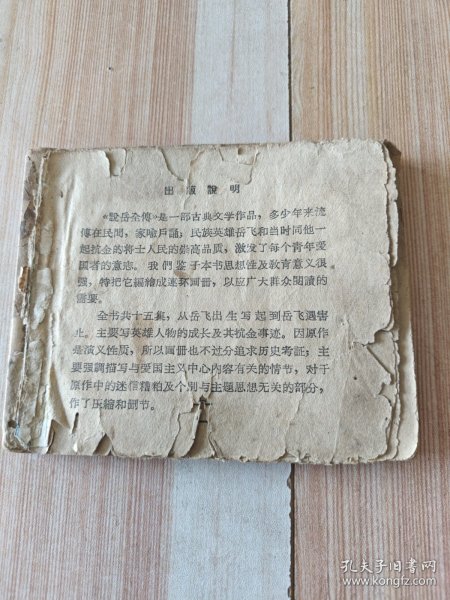 出版說明
《說岳全傳》是一部古典文学作品，多少年来流
傳在民間，家喻戶誦；民族英雄岳飞和当时同他一
起抗金的将士人民的崇高品质，激发了每个青年爱
国者的意志。我們鉴于本书思想性及教育意义很
强，特把它編繪成連环画冊，以应广大群众閱讀的
需要。
全书共十五集，从岳飞出生写起到岳飞遇害
止。主要写英雄人物的成长及其抗金事迹。因原作
是演义性质，所以画冊也不过分追求历史考証；主
要强調描写与爱国主义中心內容有关的情节，对于
原作中的迷信糟粕及个别与主題思想无关的部分，
作了压縮和删节。
孔夫子旧书网
www.kongfz.com